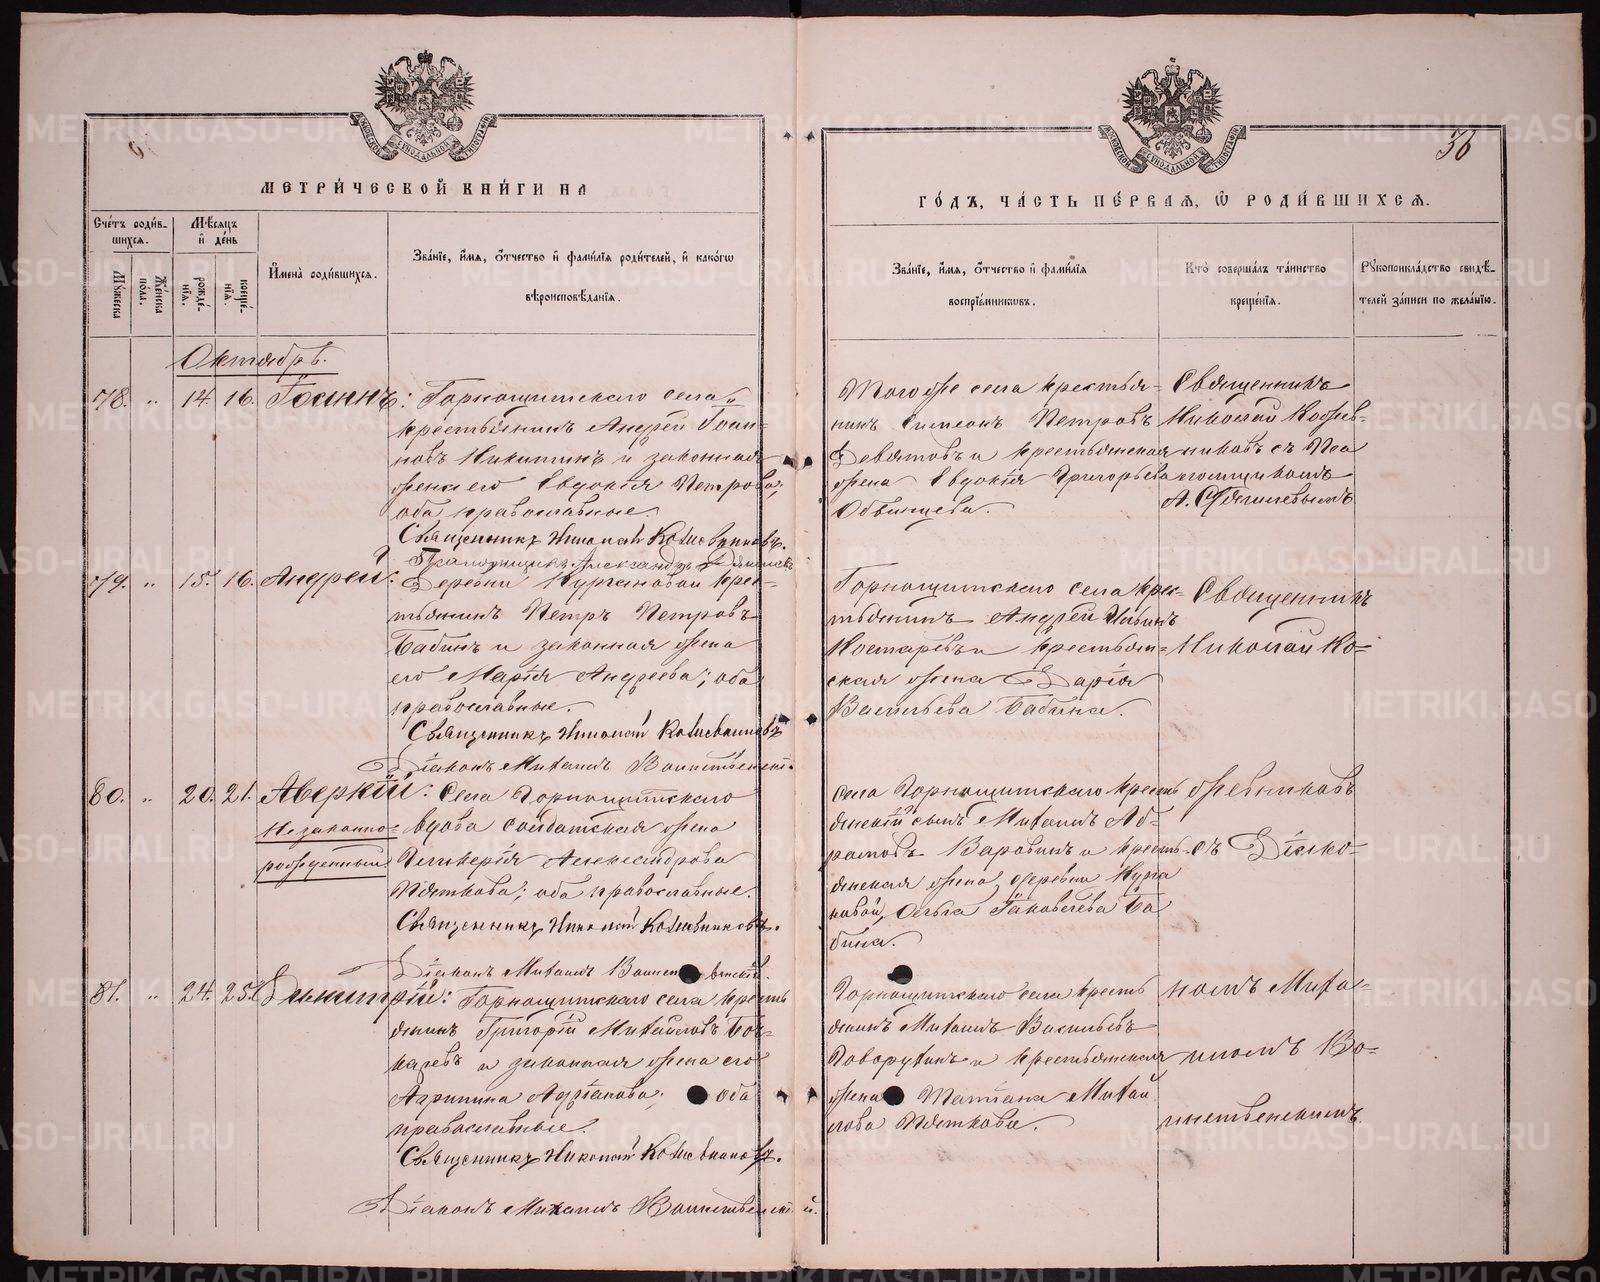 МОСКОВСКОЙ СѴНОДАЛЬНОЙ ТИПОГРАФІИ
МЕТРИ́ЧЕСКОЙ КНИ́ГИ НА
Сче́тъ роди́вшихся.
Мѣ́сяцъ и҆ де́нь
Мꙋжеска
Же́нска пола.
рожде́нїя.
креще́нїя.
И҆мена̀ роди́вшихся.
Зва́нїе, и҆́мя, ѻ҆́тчество и҆ фами́лїя роди́телей, и҆ како́гѡ
вѣроисповѣ́данїя.
Октябрь.
78. „ 14. 16. Іоаннъ: Горнощитскаго села
крестьянинъ Андрей Іоан-
новъ Никитинъ и законная
жена его Евдокія Петрова;
оба православные.
Священникъ Николай Кожевниковъ.
Псаломщикъ Александръ
79. „ 15. 16. Андрей: Деревни Кургановой крес-
тьянинъ Петръ Петровъ
Бабинъ и законная жена
его Марія Андреева; оба
православные.
Священникъ Николай Кожевниковъ
Діаконъ Михаилъ Воинственскій
80. „ 20. 21. Аверкій: Села Горнощитскаго
незаконно-
рожденный
вдова солдатская жена
Гликерія Александрова
Пяткова; оба православные.
Священникъ Николай Кожевниковъ.
Діаконъ Михаилъ Воинственскій.
81. „ 24. 25. Димитрій: Горнощитскаго села кресть
янинъ Григорій Михайловъ Боч-
каревъ и законная жена его
Агрипина Адріанова; оба
православные.
Священникъ Николай Кожевниковъ.
Діаконъ Михаилъ Воинственскій.
36
МОСКОВСКОЙ СѴНОДАЛЬНОЙ ТИПОГРАФІИ
ГО́ДЪ, ЧА́СТЬ ПЕ́РВАЯ, Ѡ҆ РОДИ́ВШИХСЯ.
Зва́нїе, и҆́мя, ѻ҆́тчество и҆ фами́лїя
воспрїе́мниковъ.
Кто̀ соверша́лъ та́инство
креще́нїя.
Рꙋкоприкла́дство свидѣ́-
телей за́писи по жела́нїю.
Того же села крестья-
нинъ Симеонъ Петровъ
Девятовъ и крестьянская
жена Евдокія Григорьева
Обвинцева.
Священникъ
Николай Кожев-
никовъ съ Пса
ломщикомъ
А.
Горнощитскаго села крес-
тьянинъ Андрей Ильинъ
Костаревъ и крестьян-
ская жена Дарія
Васильева Бабина.
Священникъ
Николай Ко-
села Горнощитскаго кресть
янскій сынъ Михаилъ Аб-
рамовъ Варавинъ и кресть-
янская жена, деревни Курга
новой, Ольга Іаковлева Ба
бина.
жевниковъ
съ Діако-
Горнощитскаго села кресть
янинъ Михаилъ Васильевъ
Говорухинъ и крестьянская
жена Татіана Михай
лова Пяткова.
номъ Миха-
иломъ Во-
инственскимъ.
METRIKI.GASO-URAL.RU